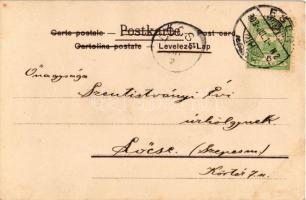 Carte postale — Postkarte — Post card
Cartolina postale — Levelező-Lap
Őnagysága
Szentistványi Évi
úrhölgynek
Lőcse. (Szepesm.)
Kórház u.